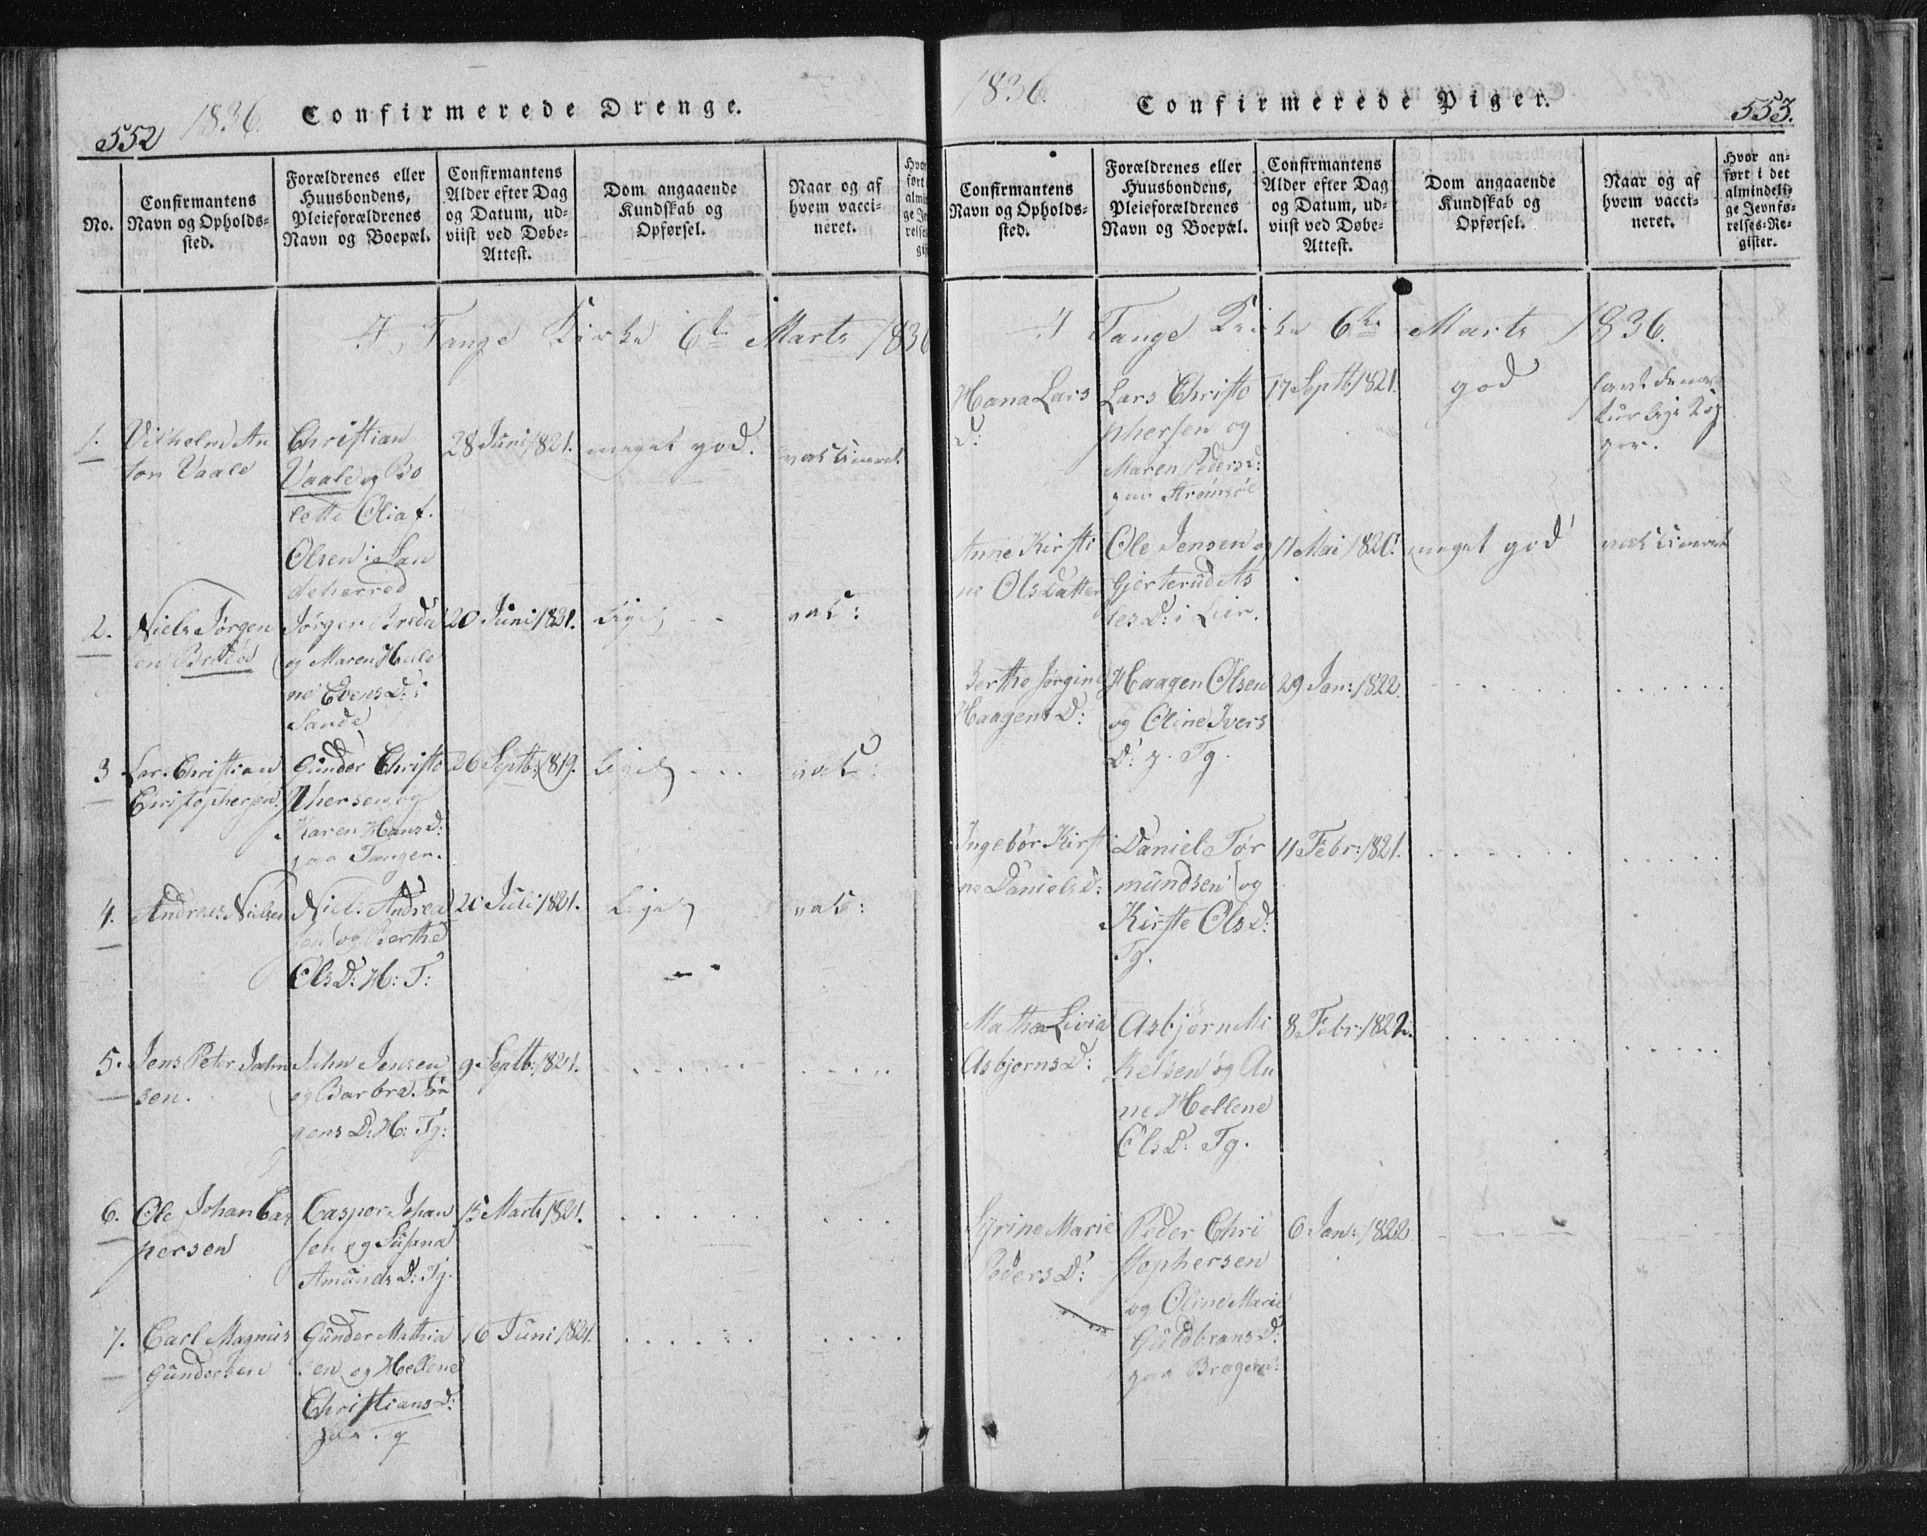 552
1836. Confirmerede Drenge.
No.
Confirmantens
Navn og Opholds-
sted.
Forældrenes eller
Huusbondens,
Pleieforældrenes
Navn og Boepæl.
Confirmantens
Alder efter Dag
og Datum, ud-
viist ved Døbe-
Attest.
Dom angaaende
Kundskab og
Opførsel.
Naar og af
hvem vacci-
neret.
I Tange Kirke 6te Marts 1836
1.
Vilhelm An
ton Vaale
Christian
Vaale og Bo
lette Olia f.
Olsen i San
deherred
28 Juni 1821.
meget god.
vaccineret
2.
Niels Jørgen
sen Breda
Jørgen Breda
og Maren Helle
ne Evens D: i
Sande
20 Juni 1821.
Ligel
vac:
3
Lars Christian
Christophersen
Gunder Christo
phersen og
Karen Hans D:
paa Tangen.
26 Septb: 1819.
Ligel
vac:
4.
Andreas Nielsen
Niels Andrea
sen og Berthe
Ols D: H: T:
20 Juli 1821.
Ligel
vac:
5.
Jens Peter John
sen.
John Jensen
og Barbra Jør
gens D: H: Tg:
9 Septb: 1821.
6.
Ole Johan Cas
persen
Casper Johan
sen og Susana
Amunds D: Tg.
15 Marts 1821.
7.
Carl Magnus
Gundersen
Gunder Mathia
sen og Hellene
Christians D:
16 Juni 1821.
1836. Confirmerede Piger.
553.
Confirmantens
Navn og Opholds-
sted.
Forældrenes eller
Huusbondens,
Pleieforældrenes
Navn og Boepæl.
Confirmantens
Alder efter Dag
og Datum, ud-
viist ved Døbe-
Attest.
Dom angaaende
Kundskab og
Opførsel.
Naar og af
hvem vacci-
neret.
Hvor an-
ført i det
almindeli-
ge Jevnfø-
relses-Re-
gister.
I Tange Kirke 6te Marts 1836.
Hana Lars
D:
Lars Christo
phersen og
Maren Peders D:
paa Strømsøe
17 Septb: 1821.
god
havt de na
turlige Kop
per.
Anne Kirsti
ne Olsdatter
Ole Jensen og
Gjerterud As
les D: i Lier.
11 Mai 1820.
meget god
vaccineret
Berthe Jørgine
Haagens D:
Haagen Olsen
og Oline Ivers
D: p. Tg.
29 Jan: 1822.
Ingebør Kirsti
ne Daniels D:
Daniel Tør
mundsen og
Kirste Ols D:
Tg.
11 Febr: 1821.
Mathæ Livia
Asbjørns D:
Asbjørn Mi
kelsen og An
ne Hellene
Ols D: Tg.
8 Febr: 1822.
Syrine Marie
Peders D:
Peder Chri
stophersen
og Oline Marie
Guldbrans D:
paa Bragern:
6 Jan: 1822.